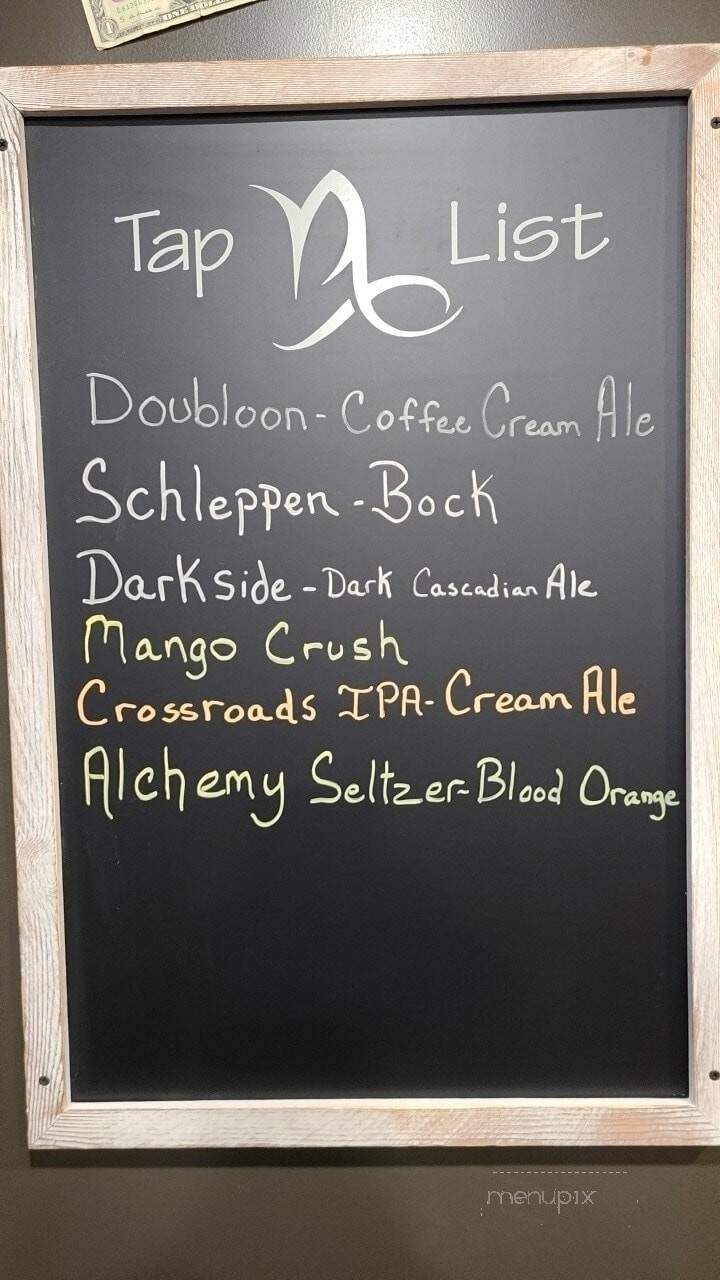 Tap List
Doubloon - Coffee Cream Ale
Schleppen - Bock
Darkside - Dark Cascadian Ale
Mango Crush
Crossroads IPA - Cream Ale
Alchemy Seltzer - Blood Orange
menupix